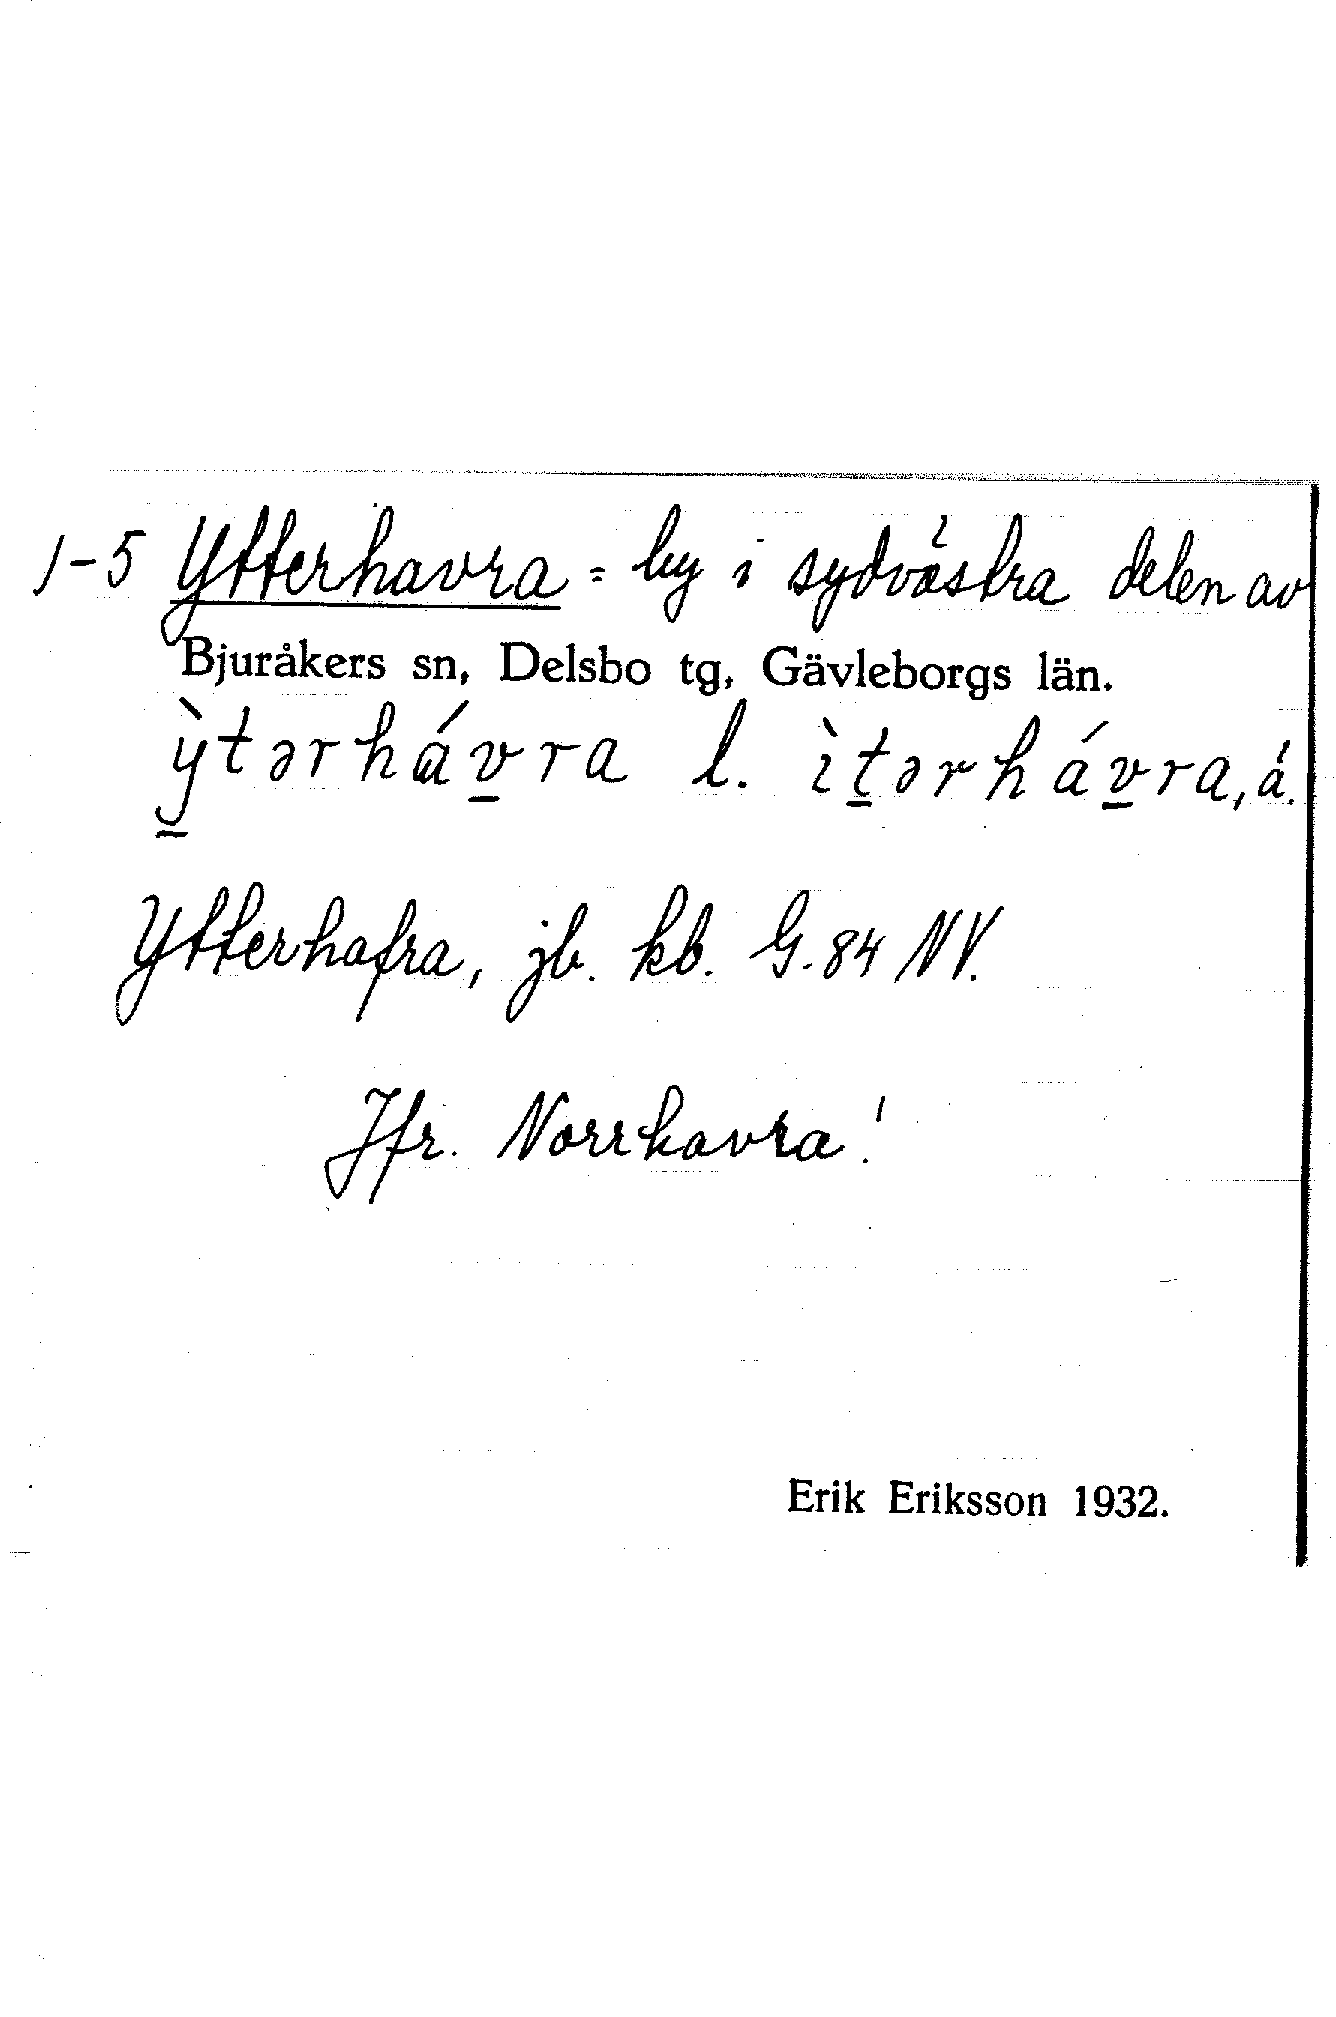 1-5 Ytterhavra = by i sydvästra delen av
Bjuråkers sn, Delsbo tg, Gävleborgs län.
ỳ̠tərháv̠ra l. ìt̠ərháv̠ra, á.
Ytterhafra, jb. kb. G. 84 NV.
Jfr. Norrhavra!
Erik Eriksson 1932.